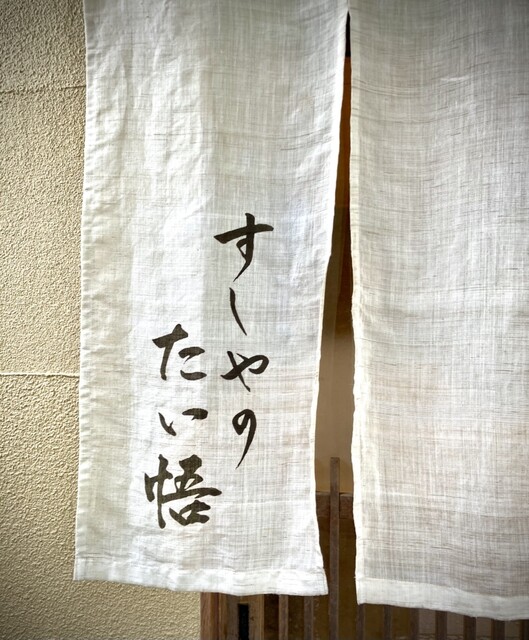 すしやの
たい悟